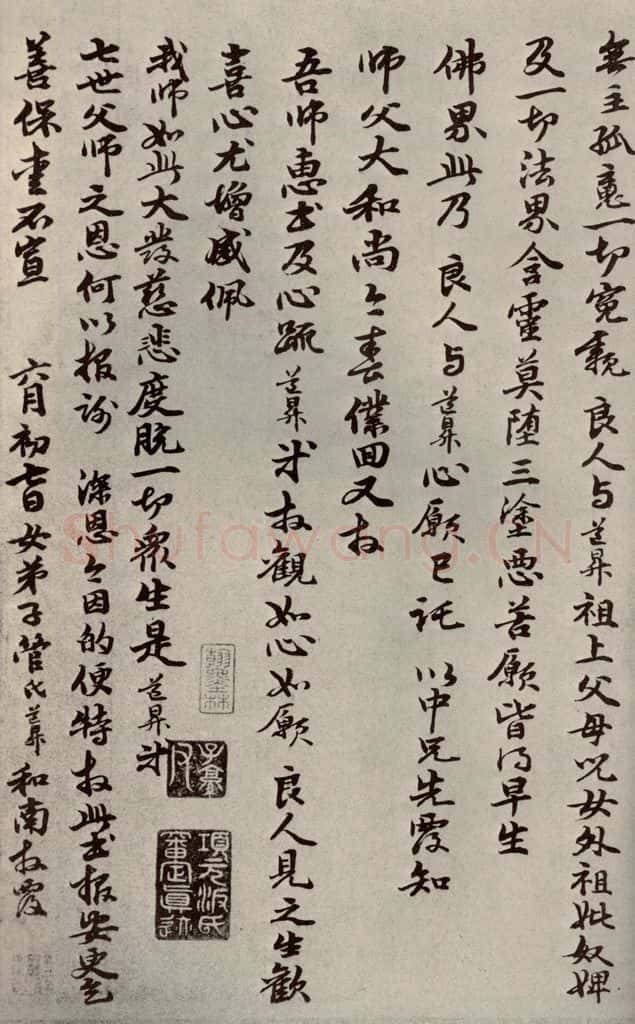 無主孤魂一切冤親 良人与道昇祖上父母兒女外祖妣奴婢
及一切法界含靈莫墮三塗惡苦願皆得早生
佛界此乃 良人与道昇心願已託 以中兄先覆知
師父大和尚今春僕回又拜
吾師惠书及心疏 道昇等拜觀如心如願 良人見之生歡
喜心尤增感佩
我師如此大發慈悲度脫一切眾生是道昇等
七世父師之恩何以報謝 深恩今因的便特拜此书報安更乞
善保重不宣 六月初七日女弟子管氏道昇和南拜覆
翰墨林
項元汴氏
審定真迹
Shufawang.CN